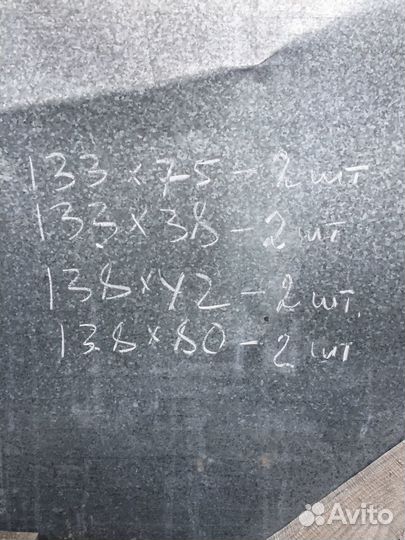 133 x 75 - 2 шт
133 x 38 - 2 шт
138 x 42 - 2 шт.
138 x 80 - 2 шт
Avito